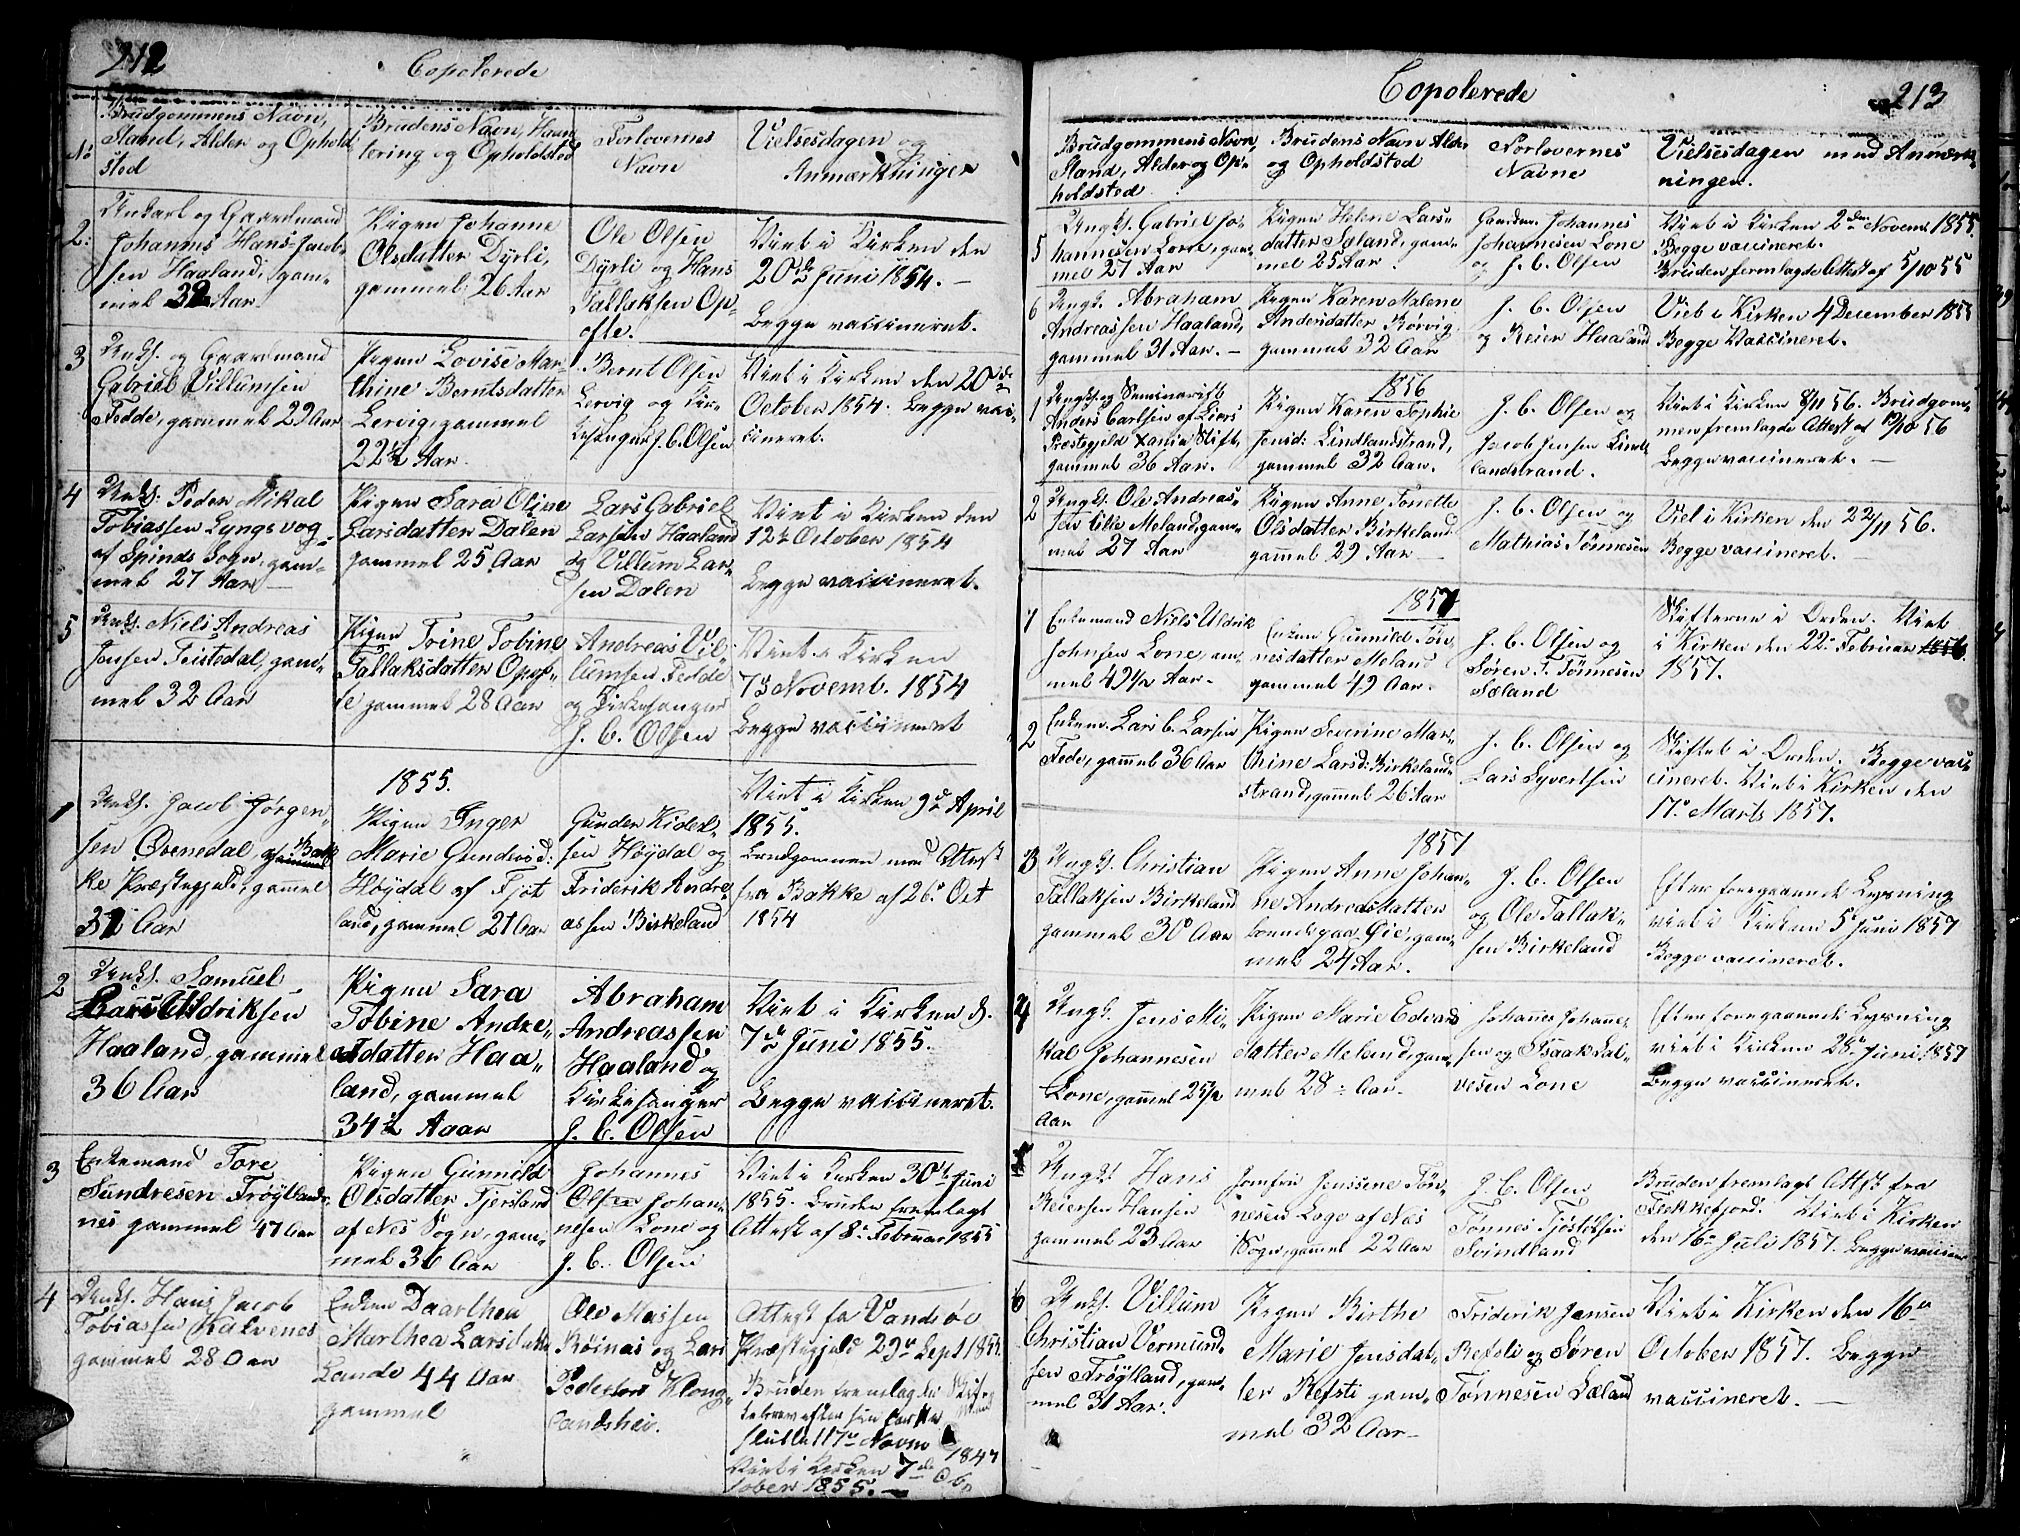 212
Copolerede
No
Brudgommens Navn,
Stand, Alder og Ophold
sted
Brudens Navn, Haan
tering og Opholdsted
Forlovernes
Navn
Vielsesdagen og
Anmærkninger
2:
Unkarl og Gaardmand
Johannes Hans Jacob-
sen Haaland, gam-
mel 32 Aar
Pigen Johanne
Olsdatter Dyrli,
gammel 26 Aar
Ole Olsen
Dyrli og Hans
Tallaksen Op-
ofte.
Viet i Kirken den
20de Juni 1854. —
Begge vaccineret.
3
Unks. og Gaardmand
Gabriel Villumsen
Fedde, gammel 29 Aar
Pigen Lovise Mar-
thine Berntsdatter
Lervig, gammel
22½ Aar
Bernt Olsen
Lervig og Kir-
kesanger J. C. Olsen
Viet i Kirken den 20de
October 1854. Begge vac-
cineret.
4
Unks. Peder Mikal
Tobiassen Lyngsvog
af Spinds Sogn, gam-
mel 27 Aar
Pigen Sara Oline
Larsdatter Dalen
gammel 25 Aar
Lars Gabriel
Larsen Haaland
og Villum Lar-
sen Dalen
Viet i Kirken den
12te October 1854
Begge vaccineret.
5
Unks. Niels Andreas
Jensen Feistedal, gam-
mel 32 Aar
Pigen Trine Tobine
Tallaksdatter Opof-
te gammel 28 Aar
Andreas Vil-
lumsen Fedde
og Kirkesanger
J. C. Olsen
Viet i Kirken
7de Novemb. 1854
Begge vaccineret
1855.
1
Unks. Jacob Jørgen-
sen Øvenedal, af Bak-
ke Præstegjeld, gammel
31 Aar
Pigen Inger
Marie Gundersd:
Høydal af Fjot
land, gammel 21 Aar
Gunder Kidel-
sen Høydal og
Friderik Andre-
assen Birkeland
Viet i Kirken 9de April
1855.
Brudgommen med Attest
fra Bakke af 26de Oct
1854
2
Unks. Samuel
Lars Uldriksen
Haaland, gammel
36 Aar
Pigen Sara
Tobine Andre-
asdatter Haa-
land, gammel
34½ Aaar
Abraham
Andreassen
Haaland og
Kirkesanger
J. C. Olsen
Viet i Kirken d.
7de Juni 1855.
Begge vaccineret.
3
Enkemand Tore
Sundresen Frøytland-
nes gammel 47 Aar
Pigen Gunnild
Olsdatter Fjersland
af Nes Sogn, gam-
mel 36 Aar
Johannes
Olsen Johan-
nesen Lone og
J. C. Olsen
Viet i Kirken 30te Juni
1855. Bruden fremlagt
Attest af 8de Februar 1855
4
Unks. Hans Jacob
Tobiassen Kalvenes
gammel 28 Aar
Enken Daarthea
Marthea Larsdatter
Lande 44 Aar
gammel
Ole Massen
Røinas og Lars
Pedersen Klong-
landshei.
Attest fa Vandsøe
Præstegjeld 29de Sept 1855.
Bruden fremlagte Skif
tebrev efter sin første Mand
sluttet 17de Novm 1847
Viet i Kirken 7de Oc
tober 1855. —
213
Copolerede
Brudgommens Navn,
Stand, Alder og Op-
holdsted
Brudens Navn Alder
og Opholdsted
Forlovernes
Navne
Vielsesdagen med Anmærk-
ninger.
5
Ungk. Gabriel Jo-
hannesen Lone, gam-
mel 27 Aar
Pigen Helene Lars-
datter Sæland, gam-
mel 25 Aar
Gaardm. Johannes
Johannesen Lone
og J. C. Olsen
Viet i Kirken 2den Novem. 1855.
Begge vaccineret.
Bruden fremlagde Attest af 5/10 55
6
Ungk. Abraham
Andreassen Haaland,
gammel 31 Aar. —
Pigen Karen Malene
Andersdatter Rørvig
gammel 32 Aar
J. C. Olsen
og Reier Haaland
Viet i Kirken 4 December 1855
Begge Vaccineret.
1856
1
Ungk. og Seminarist
Anders Carlsen af Liers
Prestegjeld Xania Stift,
gammel 36 Aar.
Pigen Karen Sophie
Jensd: Lindlandstrand,
gammel 32 Aar.
J. C. Olsen og
Jacob Jensen Lind-
landstrand.
Viet i Kirken 8/11 56. Brudgom-
men fremlagde Attest af 19/10 56
Begge vaccineret. —
2
Ungk. Ole Andreas-
sen Lille Meland, gam-
mel 27 Aar
Pigen Anne Tonette
Olsdatter Birkeland
gammel 29 Aar
J. C. Olsen og
Mathias Tönnesen
Viet i Kirken den 22/11 56.
Begge vaccineret.
1857
1
Enkemand Niels Uldrik
Johnsen Lone, gam-
mel 49½ Aar.
Enken Gunnild Tön-
nesdatter Meland
gammel 49 Aar.
J. C. Olsen og
Søren T. Tönnesen
Sæland
Skifterne i Orden. Viet
i Kirken den 22de Februar 1856.
1857.
2
Enkem. Lars C. Larsen
Fede, gammel 36 Aar
Pigen Severine Mar-
thine Larsd: Birkeland-
strand, gammel 26 Aar
J. C. Olsen og
Lars Syvertsen
Skiftet i Orden. Begge vac-
cineret. Viet i Kirken den
17de Marts 1857.
1857
3
Ungk. Christian
Tallaksen Birkeland
gammel 30 Aar
Pigen Anne Johan-
ne Andreasdatter
boende paa Øie, gam-
mel 24 Aar.
J. C. Olsen
og Ole Tallak-
sen Birkeland
Efter foregaaende Lysning
viet i Kirken 5te Juni 1857
Begge vaccineret.
4
Ungk. Jens Mi-
kal Johannesen
Lone, gammel 25½
Aar
Pigen Marie Edvards
datter Meland, gam-
mel 28 Aar.
Johannes Johanne-
sen og Isaak Sal-
vesen Lone
Efter foregaaende Lysning
viet i Kirken 28de Juni 1857
Begge vaccineret.
5
Ungk. Hans
Reiersen Hansen
gammel 23 Aar
Jomfru Jenssene Tön-
nesen Loge af Nes
Sogn, gammel 22 Aar
J. C. Olsen
Tønnes Tjøstelsen
Svindland
Bruden fremlagt Attest fra
Flekkefjord. Viet i Kirken
den 16de Juli 1857. Begge vaccineret
6
Unks. Villum
Christian Vermund-
sen Frøytland, gam-
mel 31 Aar.
Pigen Birthe
Marie Jensdat-
ter Refsti gam-
mel 32 Aar
Friderik Jansen
Refsti og Søren
Tönnesen Sæland
Viet i Kirken den 16de
October 1857. Begge
vaccineret. —